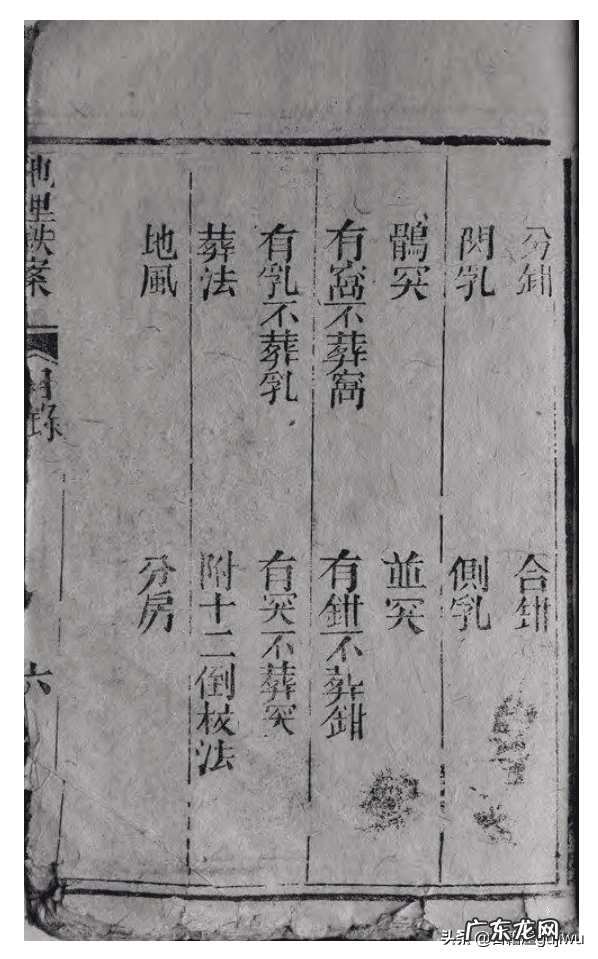 分鉗 合鉗
閃乳 側乳
鶻突 並突
有窩不葬窩 有鉗不葬鉗
有乳不葬乳 有突不葬突
葬法 附十二倒杖法
地風 分房
地理鉄案 目錄 六
广东龙网